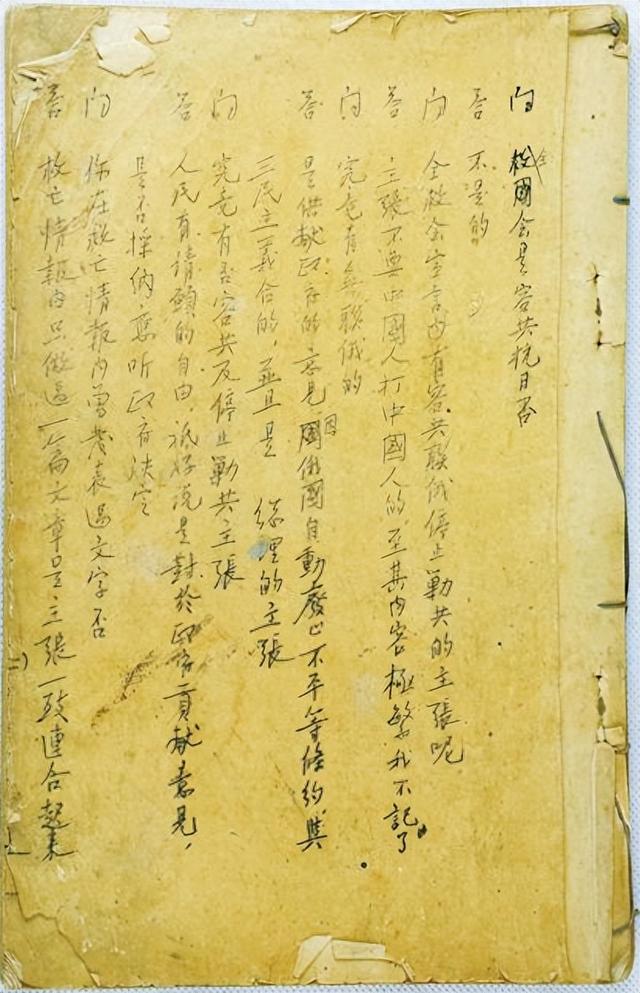 问 全救國会是容共抗日否
答 不是的
问 全救会宣言内有容共联俄停止勦共的主張呢
答 主張不要中國人打中國人的，至其内容極繁我不記了
问 究竟有無联俄的
答 是供献政府的意見，因俄國自動廢止不平等條約，與
三民主義合的，並且是 總理的主張
问 究竟有否容共及停止勦共主張
答 人民有請願的自由，祇好说是對於政府貢献意見，
是否採納，應听政府决定
问 你在救亡情報内曾發表過文字否
答 救亡情報内只做過一篇文章是主張一致連合起来